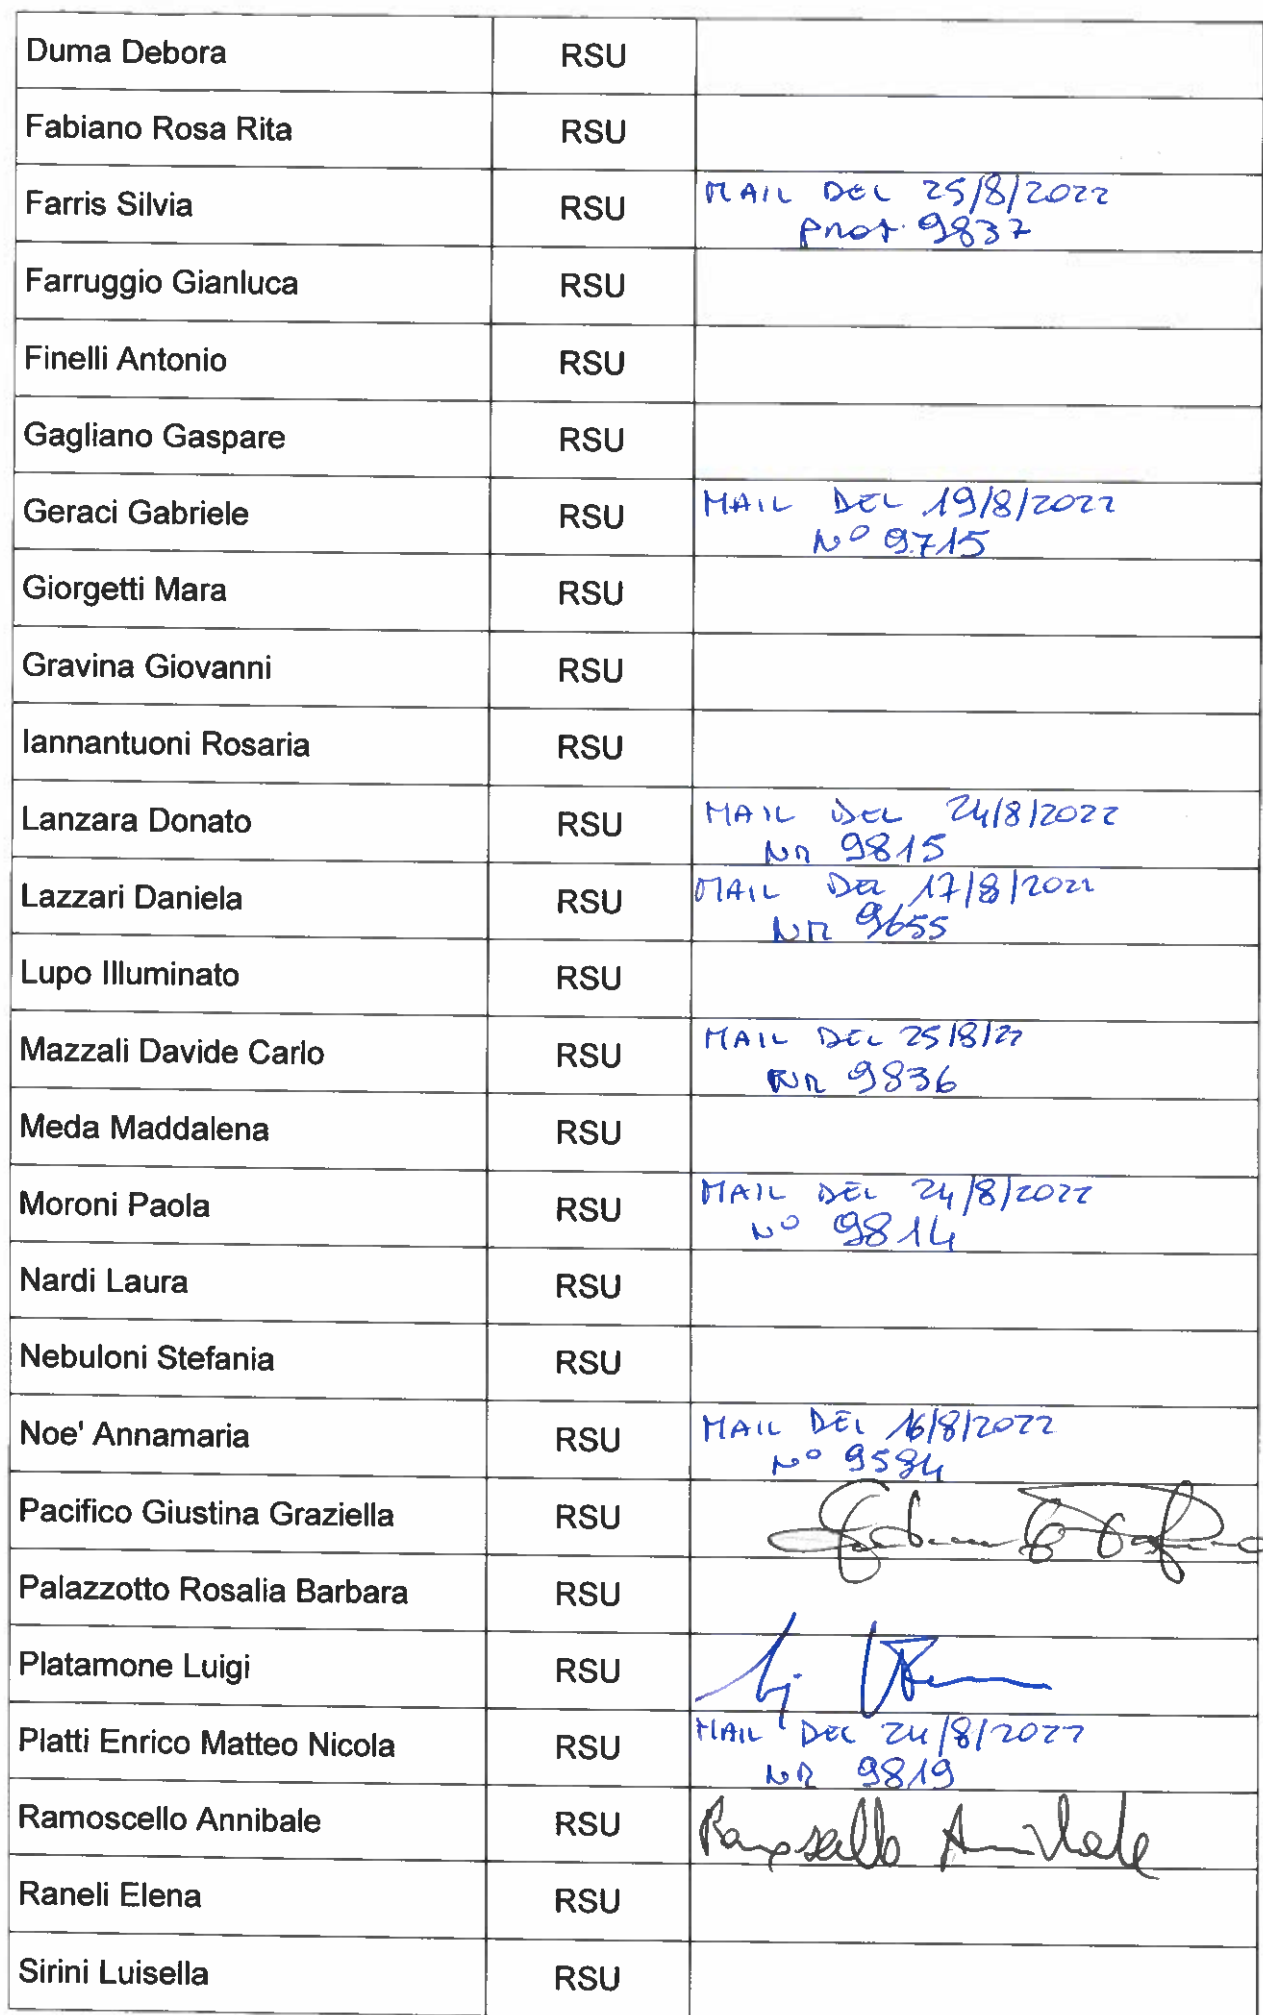 Duma Debora RSU
Fabiano Rosa Rita RSU
Farris Silvia RSU MAIL DEL 25/8/2022
prot. 9837
Farruggio Gianluca RSU
Finelli Antonio RSU
Gagliano Gaspare RSU
Geraci Gabriele RSU MAIL DEL 19/8/2022
N° 9715
Giorgetti Mara RSU
Gravina Giovanni RSU
Iannantuoni Rosaria RSU
Lanzara Donato RSU MAIL DEL 24/8/2022
NR 9815
Lazzari Daniela RSU MAIL DEL 17/8/2022
NR 9655
Lupo Illuminato RSU
Mazzali Davide Carlo RSU MAIL DEL 25/8/22
NR 9836
Meda Maddalena RSU
Moroni Paola RSU MAIL DEL 24/8/2022
N° 9814
Nardi Laura RSU
Nebuloni Stefania RSU
Noe' Annamaria RSU MAIL DEL 16/8/2022
N°
Pacifico Giustina Graziella RSU
Palazzotto Rosalia Barbara RSU
Platamone Luigi RSU
Platti Enrico Matteo Nicola RSU MAIL DEL 24/8/2022
NR 9819
Ramoscello Annibale RSU Ramoscello Annibale
Raneli Elena RSU
Sirini Luisella RSU